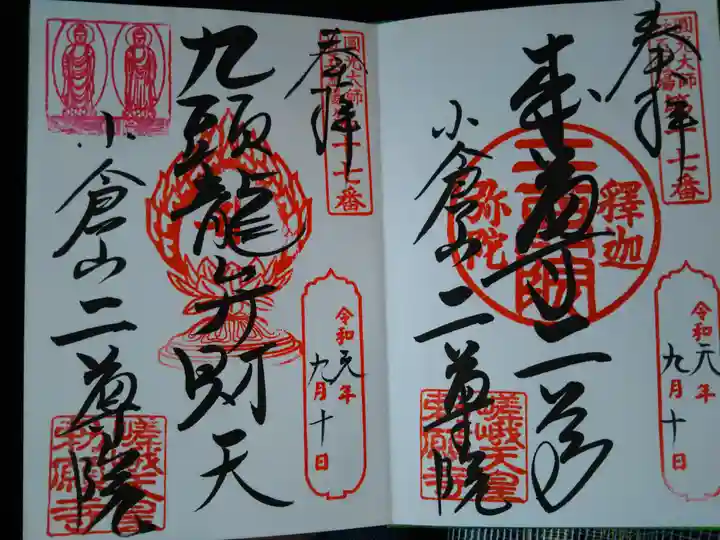 奉拝
圓光大師
第十七番
釋迦
弥陀
本尊二尊
小倉山二尊院
嵯峨天皇
勅願寺
令和元年
九月十日
奉拝
圓光大師
第十七番
九頭龍弁財天
小倉山二尊院
嵯峨天皇
勅願寺
令和元年
九月十日